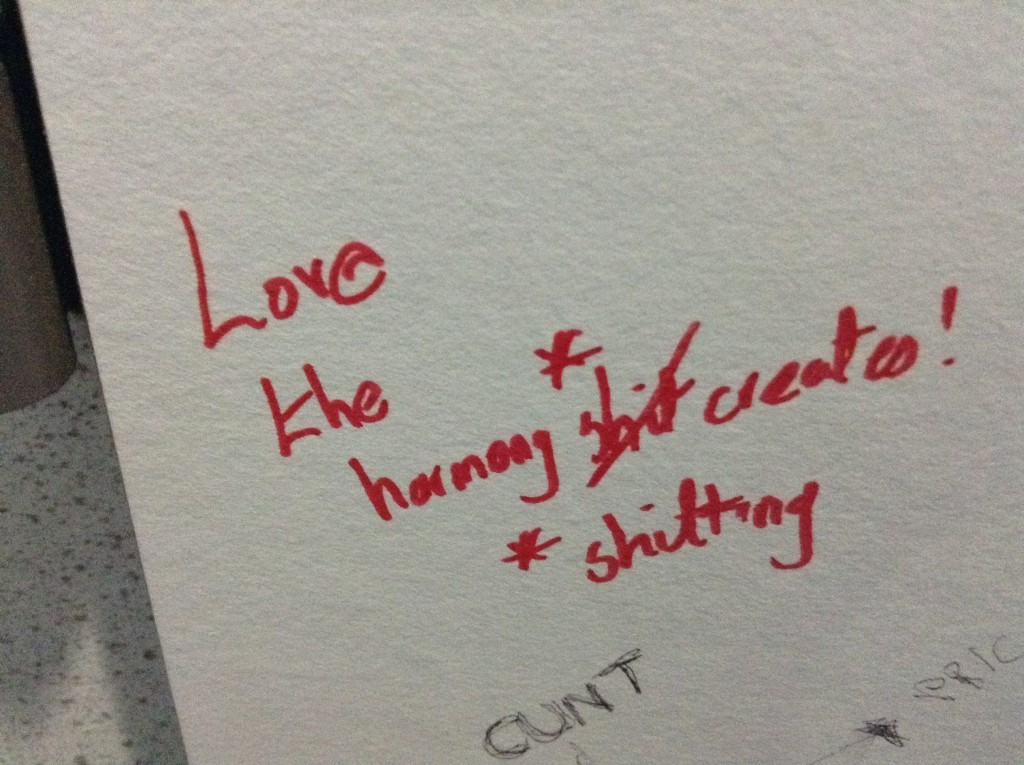 Love
the
*
harmony shit creates!
* shitting
CUNT
PRIC